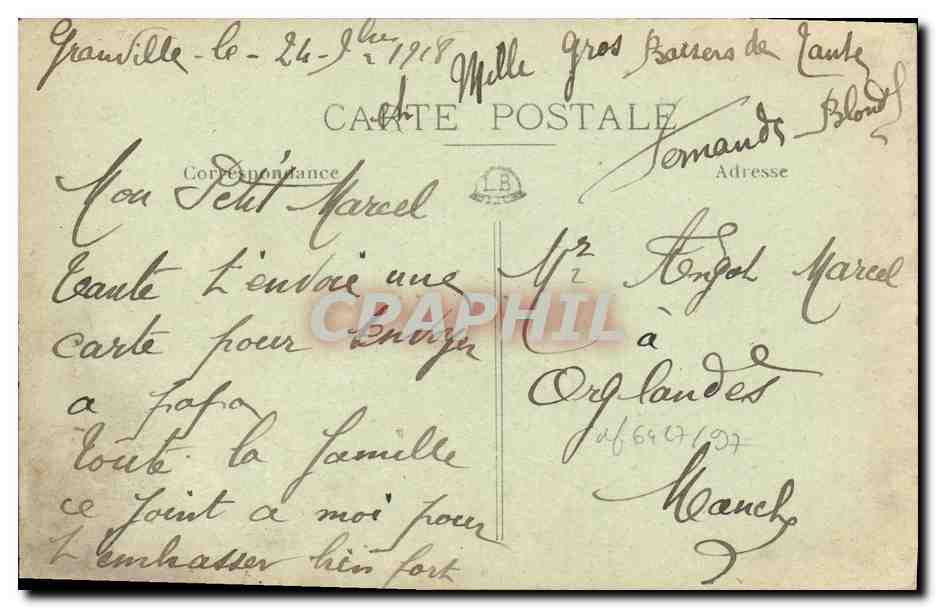 Granville - le - 24 - 9bre 1918
Mille Gros Baisers de Tante
Fernande Blond
CARTE POSTALE
Correspondance
Adresse
LB
Mon Petit Marcel
Tante t'envoie une
carte pour Envoyer
a papa
Toute la famille
ce joint a moi pour
t'embrasser bien fort
Mr Angot Marcel
à
Orglandes
Manche
CPAPHIL